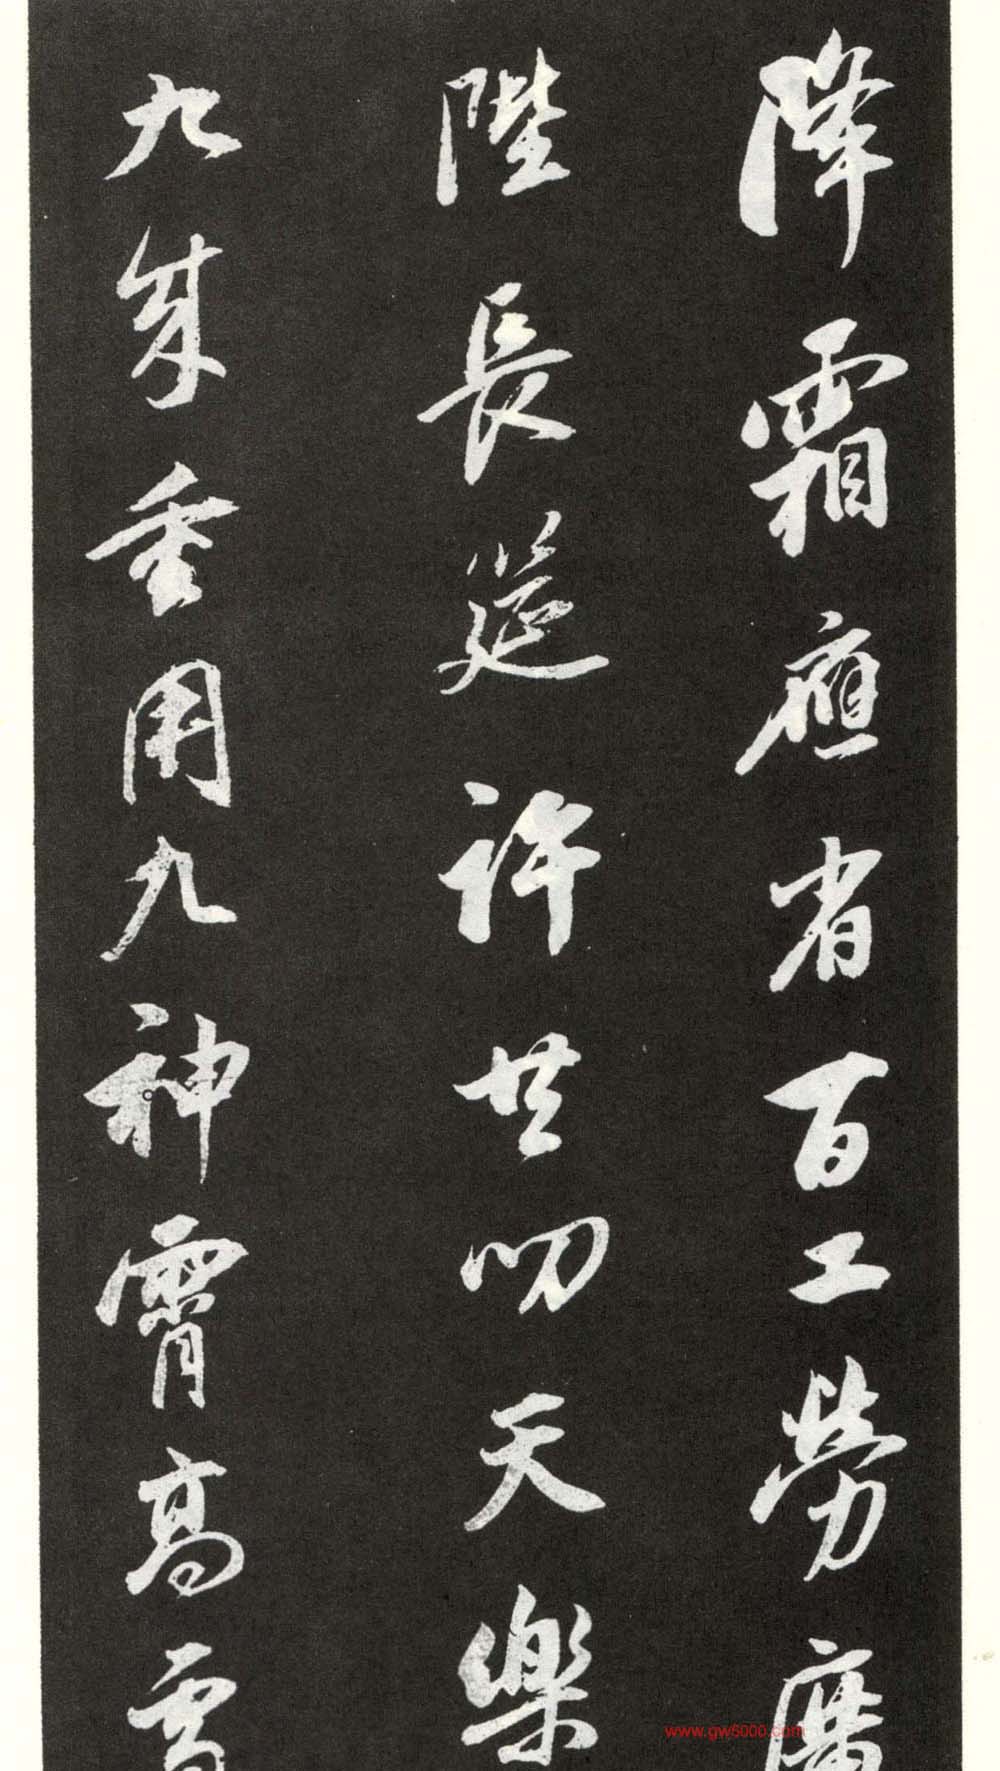 降霜應省百工勞廣
陛長筵許共叨天樂
九成重用九神霄高
www.gw5000.com